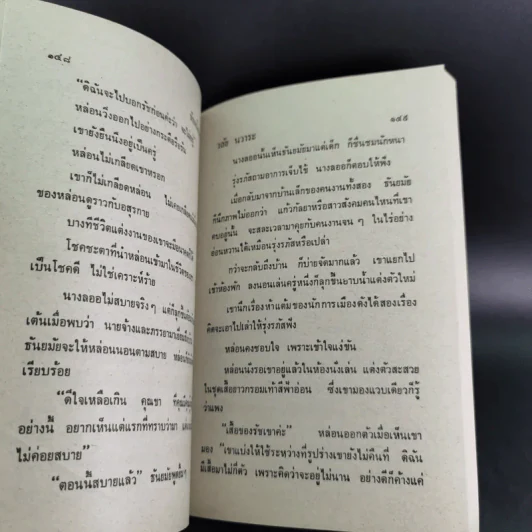 ๑๔๘
"ดิฉันจะไปบอกรัชก่อนค่ะว่า
หล่อนวิ่งออกไปอย่างกระตือรือร้น
เขายังยืนนิ่งอยู่เป็นครู่
หล่อนไม่เกลียดเขาหรอก
เขาก็ไม่เกลียดหล่อน
ของหล่อนดูราวกับอสุรกาย
บางทีชีวิตแต่งงานของเขาจะ
โชคชะตาที่นำหล่อนเข้ามาในชีวิต
เป็นโชคดี ไม่ใช่เคราะห์ร้าย
นางลออไม่สบายจริงๆ
เต้นเมื่อพบว่า นายจ้างและภรรยามาเยี่ยม
ธันยมัยจะให้หล่อนนอนตามสบาย
เรียบร้อย
"ดีใจเหลือเกิน คุณขา
อย่างนี้ อยากเห็นแต่แรกที่ทราบว่ามา
ไม่ค่อยสบาย"
"ตอนนี้สบายแล้ว" ธันยมัยพูดยิ้มๆ
๑๔๙
วลัย นวาระ
นางลออนั้นเห็นธันยมัยมาแต่เด็ก ก็ชื่นชมนักหนา
รุ่งรภัสถามอาการเจ็บไข้ นางลออก็ตอบให้ฟัง
เมื่อกลับมาจากบ้านเล็กของคนงานทั้งสอง ธันยมัย
ก็นึกภาพไม่ออกว่า แก้วกัลยาหรือสาวสังคมคนไหนที่เขา
คบอยู่นั้น จะสละเวลามาคุยกับคนงานจนๆ ในไร่อย่าง
อ่อนหวานได้เหมือนรุ่งรภัสหรือเปล่า
กว่าจะกลับถึงบ้าน ก็บ่ายจัดมากแล้ว เขาแยกไป
เข้าห้องพัก ลงนอนเล่นครู่หนึ่งก็ลุกขึ้นอาบน้ำแต่งตัวใหม่
เขานึกเรื่องขำแต้มของนักการเมืองดังได้สองเรื่อง
คิดจะเอาไปเล่าให้รุ่งรภัสฟัง
หล่อนคงชอบใจ เพราะเข้าใจแง่ขัน
หล่อนนั่งรอเขาอยู่แล้วในห้องนั่งเล่น แต่งตัวสะสวย
ในชุดเสื้อยาวกรอมเท้าสีฟ้าอ่อน ซึ่งเขามองแวบเดียวก็รู้
ว่าแพง
"เสื้อของรัชเขาค่ะ" หล่อนออกตัวเมื่อเห็นเขา
มอง "เขาแบ่งให้ใช้ระหว่างที่รูปร่างเขายังไม่คืนที่ ดิฉัน
มีเสื้อมาไม่กี่ตัว เพราะคิดว่าจะอยู่ไม่นาน อย่างดีก็ค้างแค่